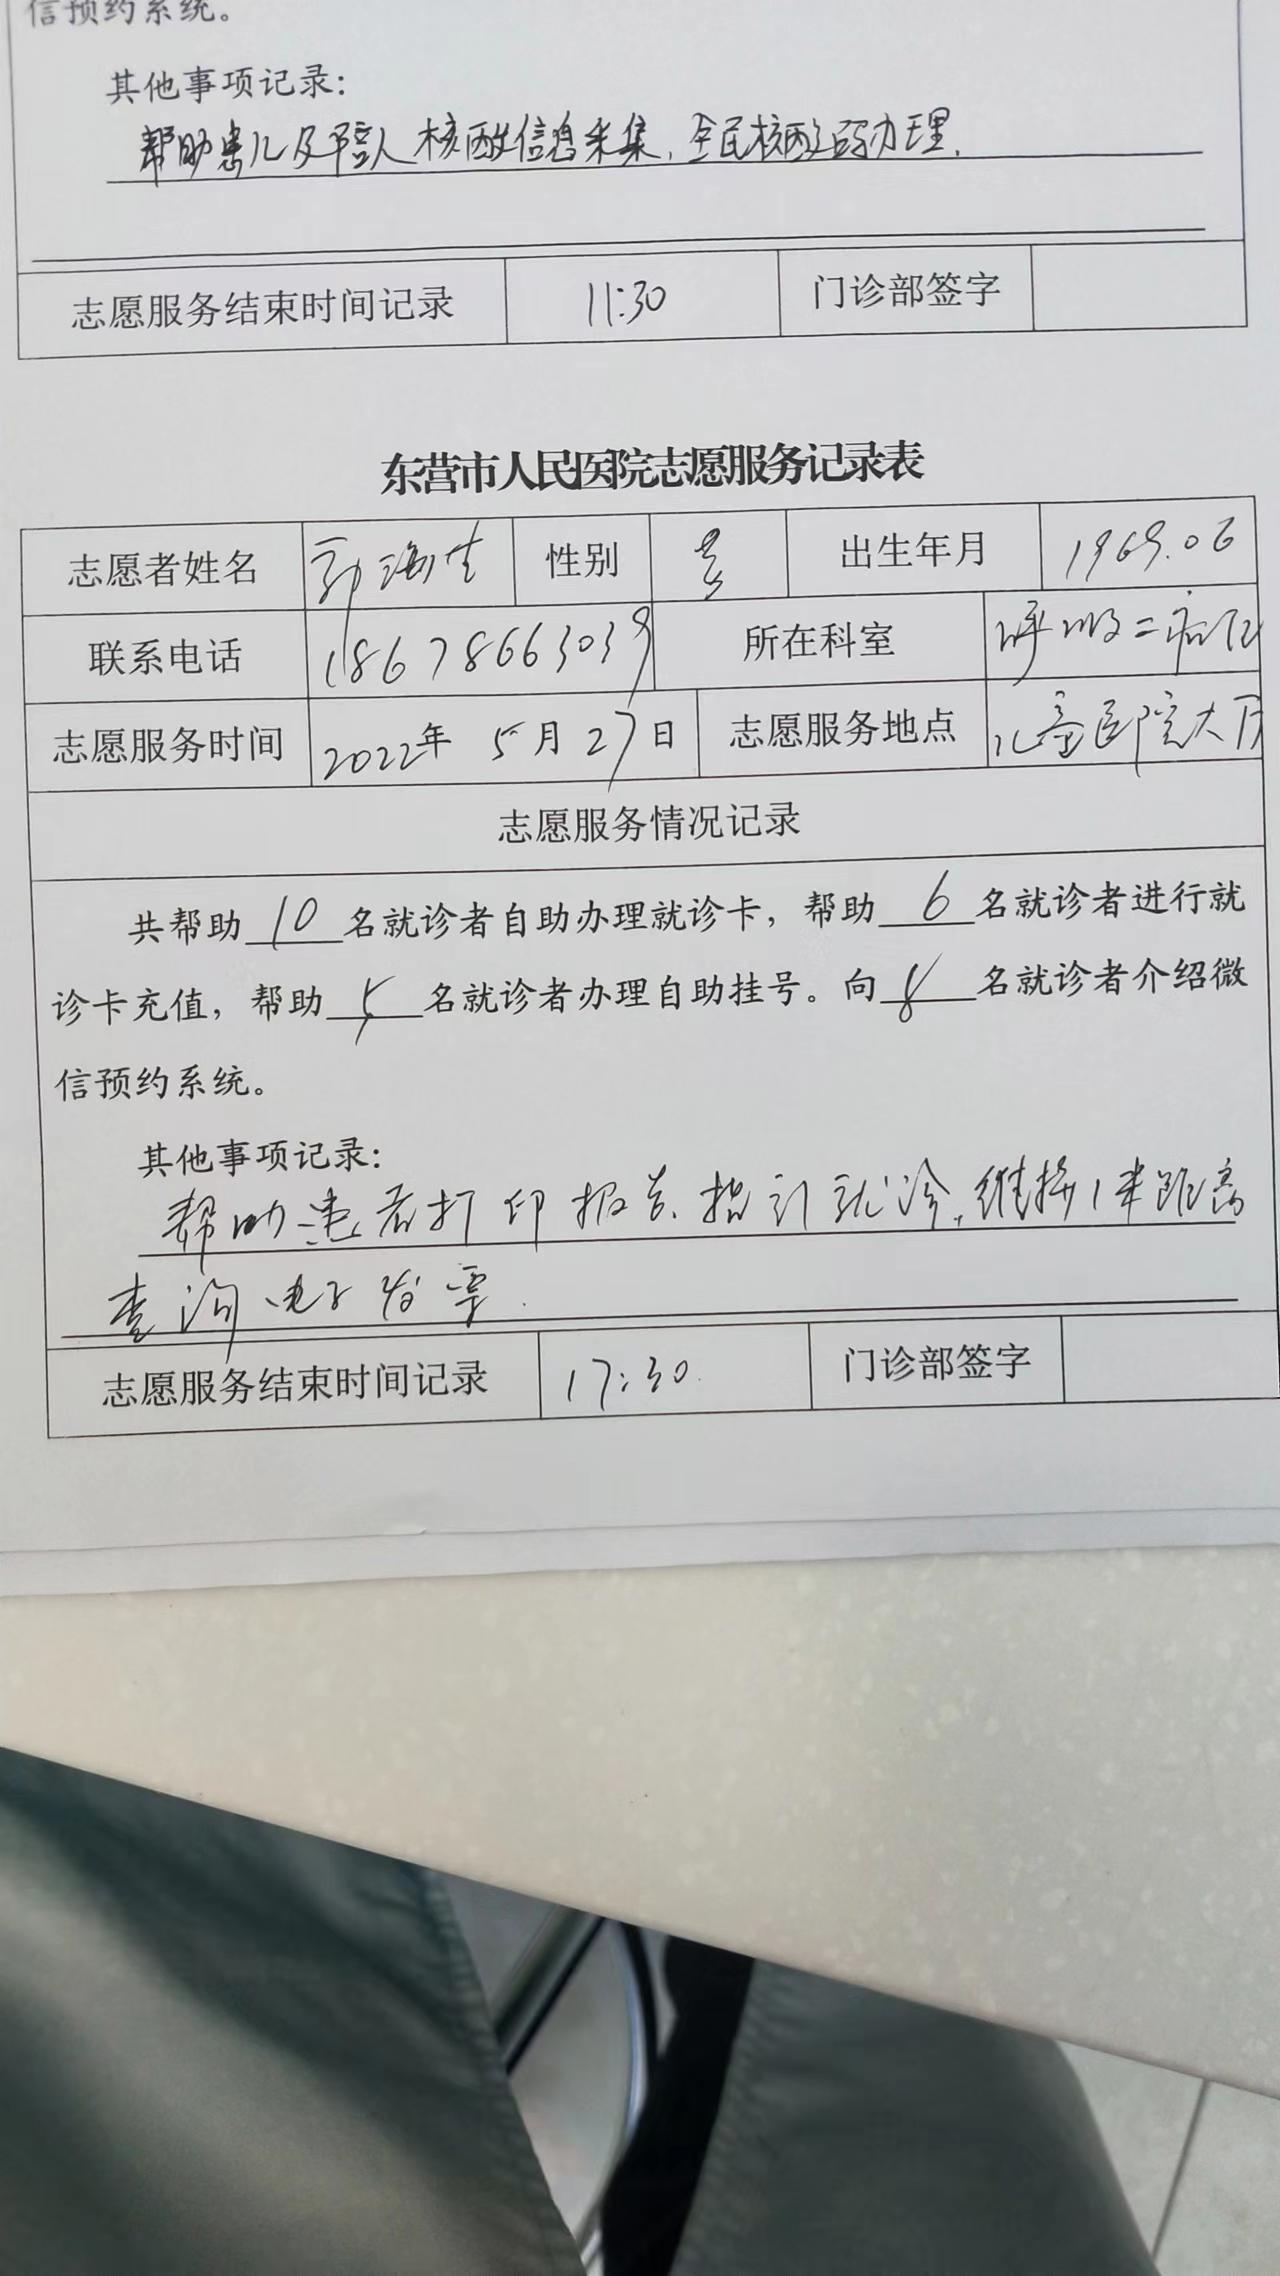 信预约系统。
其他事项记录：
帮助患儿及陪人核酸信息采集，全民核酸码办理。
志愿服务结束时间记录 11:30 门诊部签字
东营市人民医院志愿服务记录表
志愿者姓名 郭海生 性别 出生年月 1969.06
联系电话 18678663039 所在科室 呼吸二病区
志愿服务时间 2022年 5月27日 志愿服务地点 儿童医院大厅
志愿服务情况记录
共帮助 10 名就诊者自助办理就诊卡，帮助 6 名就诊者进行就
诊卡充值，帮助 5 名就诊者办理自助挂号。向 8 名就诊者介绍微
信预约系统。
其他事项记录：
帮助患者打印报告、指引就诊，维持1米距离
查询电子发票.
志愿服务结束时间记录 17:30. 门诊部签字